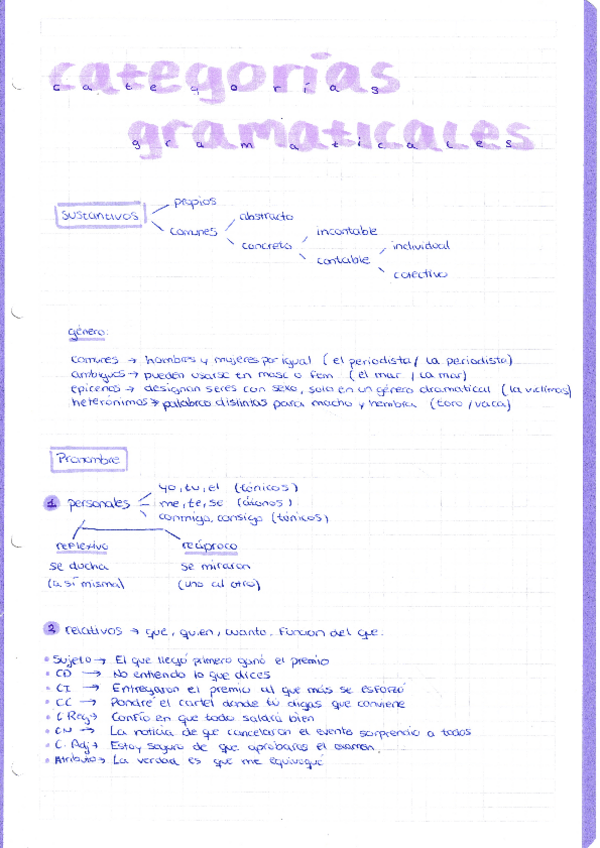 categorías
categorías
gramaticales
gramaticales
sustantivos
propios
comunes
abstracto
concreto
incontable
contable
individual
colectivo
género:
comunes → hombres y mujeres por igual (el periodista / la periodista)
ambiguos → pueden usarse en masc o fem (el mar / la mar)
epicenos → designan seres con sexo, solo en un género gramatical (la víctima)
heterónimos → palabras distintas para macho y hembra (toro / vaca)
Pronombre
1 personales
yo, tu, el (tónicos)
me, te, se (átonos)
conmigo, consigo (tónicos)
reflexivo
recíproco
se ducha
se miraron
(a sí misma)
(uno al otro)
2 relativos → que, quien, cuanto. Funcion del que:
Sujeto → El que llegó primero ganó el premio
CD → No entiendo lo que dices
CI → Entregaron el premio al que más se esforzó
CC → Pondré el cartel donde tu digas que conviene
C Reg → Confío en que todo saldrá bien
CN → La noticia de que cancelaron el evento sorprendio a todos
C. Adj → Estoy seguro de que aprobarás el examen.
Atributo → La verdad es que me equivoqué